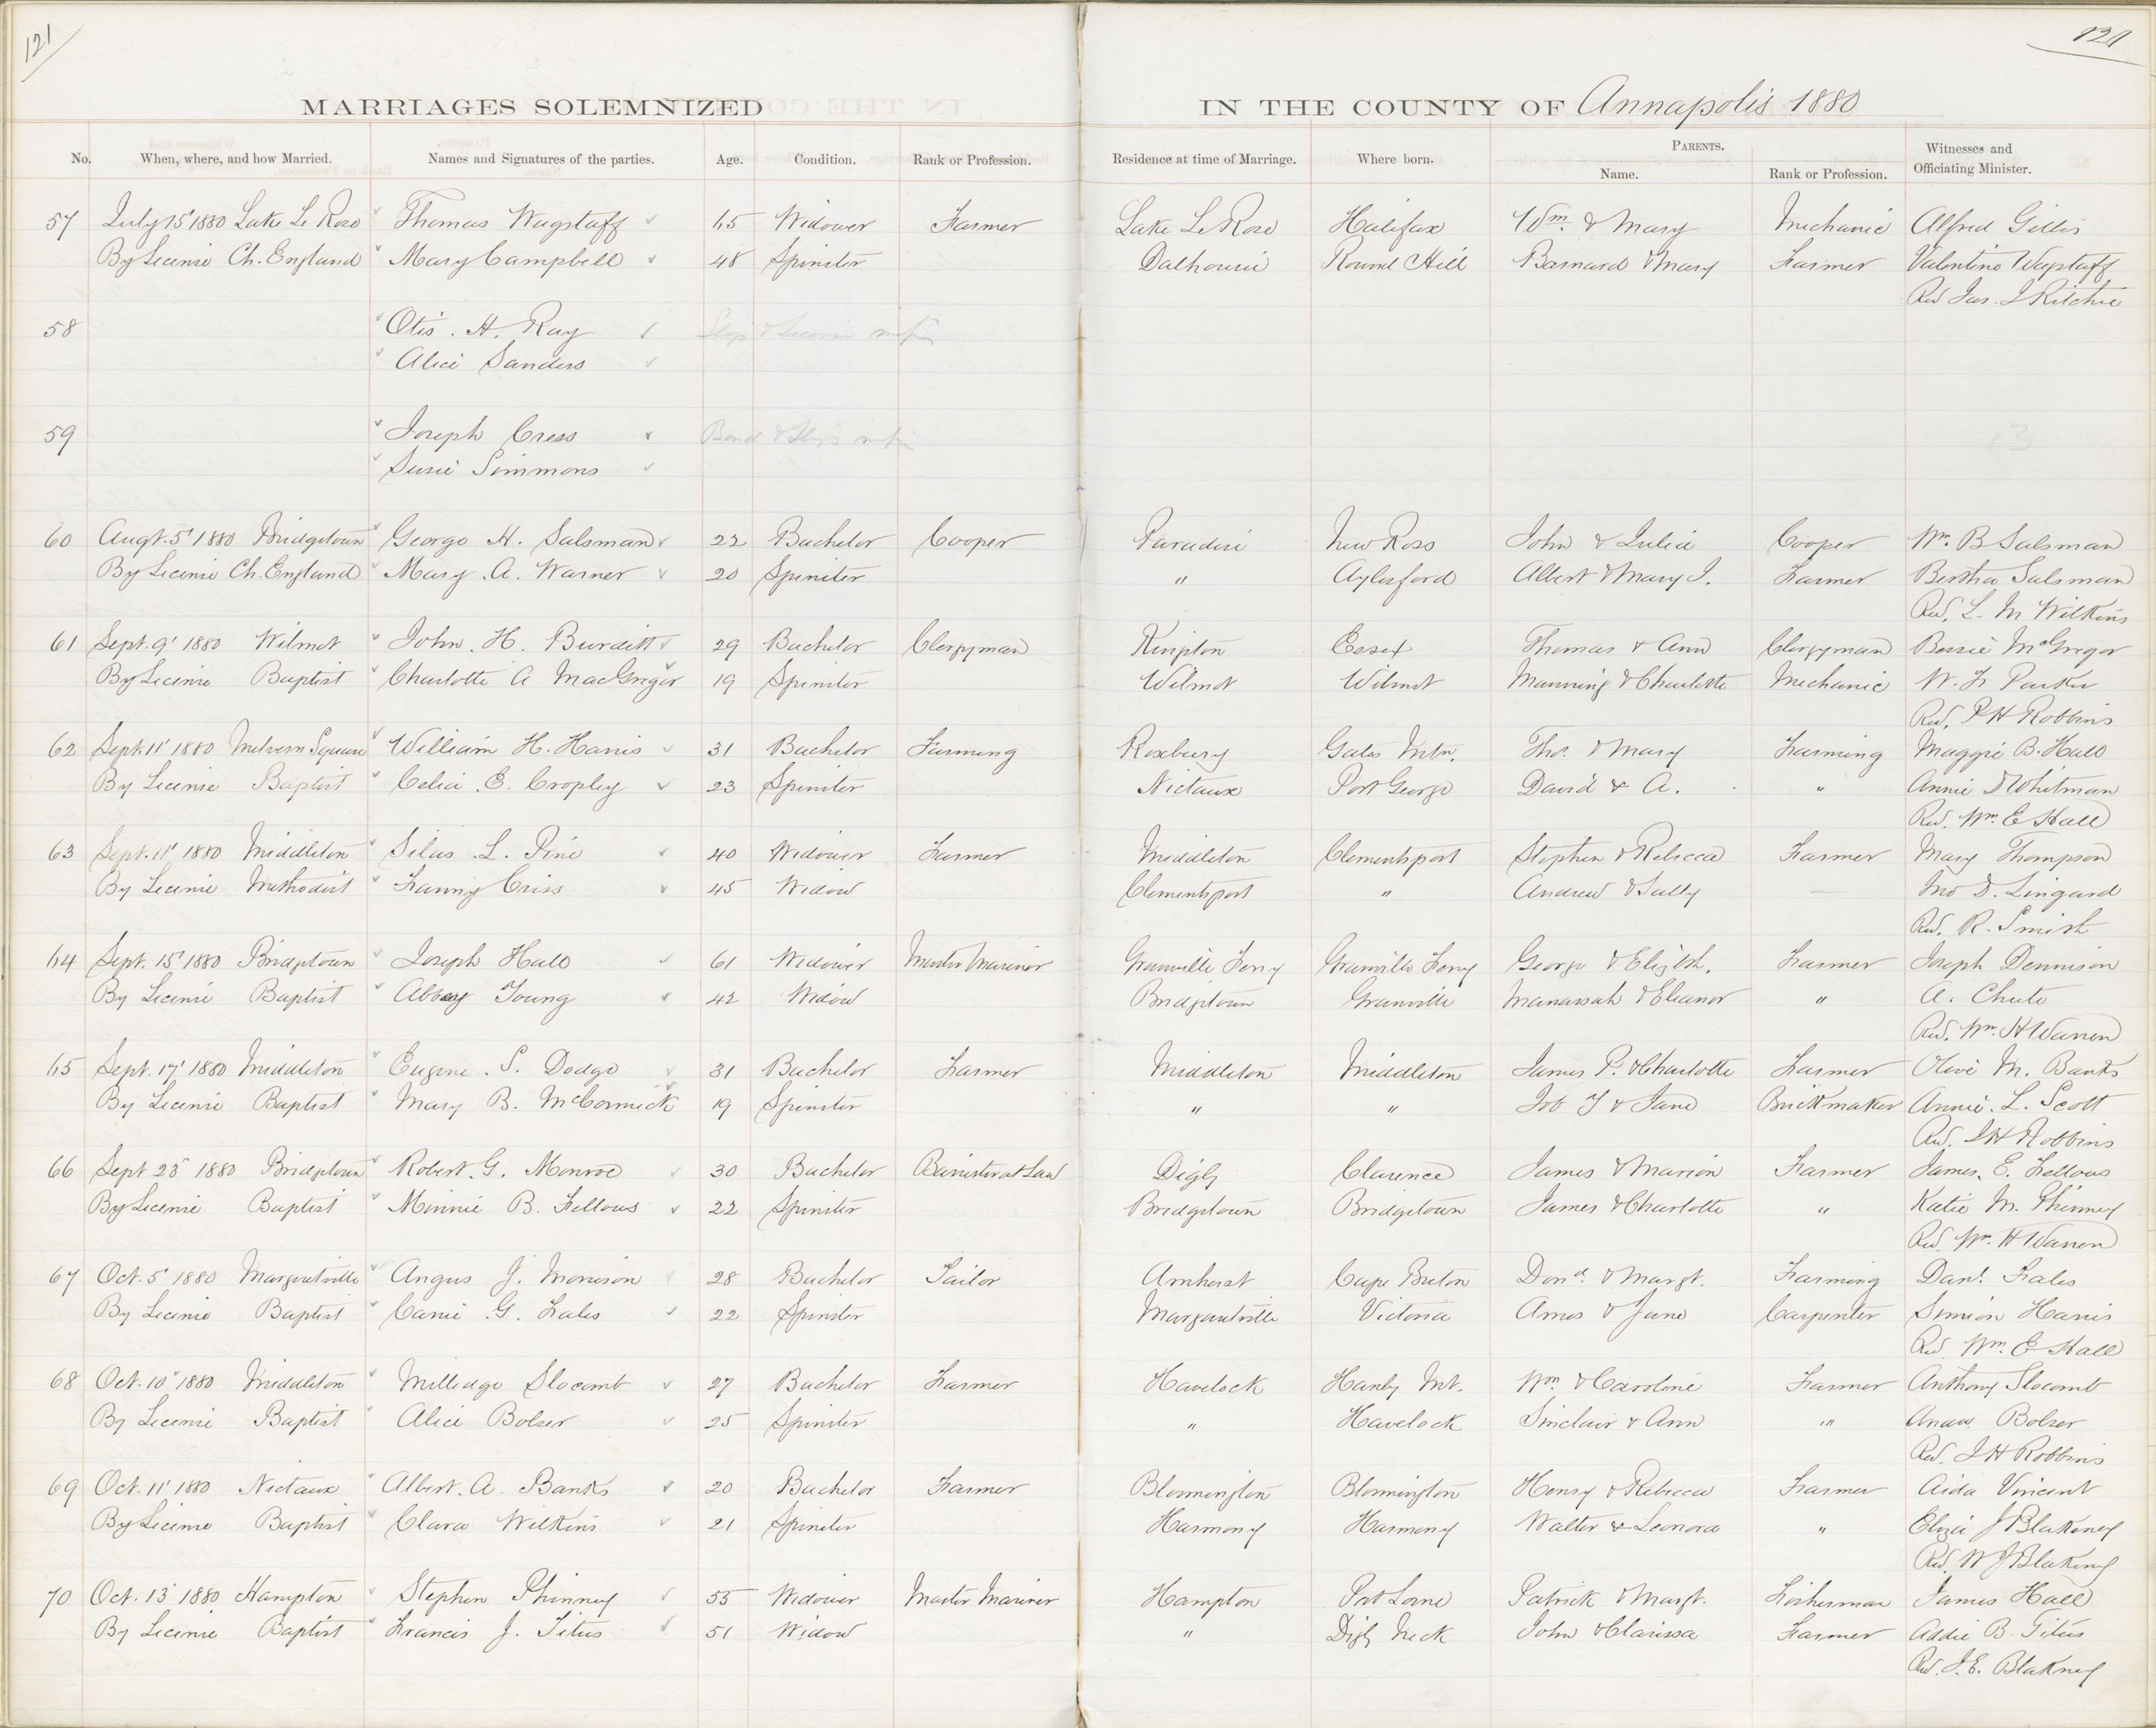 121
121
MARRIAGES SOLEMNIZED IN THE COUNTY OF Annapolis 1880
No. When, where, and how Married. Names and Signatures of the parties. Age. Condition. Rank or Profession. Residence at time of Marriage. Where born. PARENTS. Name. Rank or Profession. Witnesses and Officiating Minister.
57 July 15' 1880 Lake Le Rose Thomas Wagstaff 65 Widower Farmer Lake Le Rose Halifax Wm. & Mary Mechanic Alfred Gillis
By License Ch. England Mary Campbell 48 Spinster Dalhousie Round Hill Barnard & Mary Farmer Valentine Wagstaff
Rev Jas. J Ritchie
58 Otis. H. Ray Slip & License
Alice Sanders
59 Joseph Cress Bond & Slip
Susie Simmons
60 Augt. 5' 1880 Bridgetown George H. Salsman 22 Bachelor Cooper Paradise New Ross John & Julia Cooper Wm. B Salsman
By License Ch. England Mary. A. Warner 20 Spinster " Aylesford Albert & Mary J. Farmer Bertha Salsman
Rev. L. M Wilkins
61 Sept. 9' 1880 Wilmot John. H. Burditt 29 Bachelor Clergyman Kingston Essex Thomas & Ann Clergyman Bessie McGregor
By License Baptist Charlotte A MacGregor 19 Spinster Wilmot Wilmot Manning & Charlotte Mechanic W. F. Parker
Rev. P H Robbins
62 Sept. 11' 1880 Melvern Square William H. Harris 31 Bachelor Farming Roxbury Gates Mtn. Thos. & Mary Farming Maggie B. Hall
By License Baptist Celia. E. Cropley 23 Spinster Nictaux Port George David & A. " Annie D Whitman
Rev. Wm. E Hall
63 Sept. 11' 1880 Middleton Silas. L. Pine 40 Widower Farmer Middleton Clementsport Stephen & Rebecca Farmer Mary Thompson
By License Methodist Fanny Criss 45 Widow Clementsport " Andrew & Sally — Jno D. Lingard
Rev. R. Smith
64 Sept. 15' 1880 Bridgetown Joseph Hall 61 Widower Master Mariner Granville Ferry Granville Ferry George & Elizbth. Farmer Joseph Dennison
By License Baptist Abbey Young 42 Widow Bridgetown Granville Manassah & Eleanor " A. Chute
Rev. Wm. H Warren
65 Sept. 17' 1880 Middleton Eugene. S. Dodge 31 Bachelor Farmer Middleton Middleton James P. & Charlotte Farmer Olive M. Banks
By License Baptist Mary B. McCormick 19 Spinster " " Job T & Jane Brickmaker Annie. L. Scott
Rev. J H Robbins
66 Sept 23' 1880 Bridgetown Robert. G. Monroe 30 Bachelor Barrister at Law Digby Clarence James & Marion Farmer James. E. Fellows
By License Baptist Minnie B. Fellows 22 Spinster Bridgetown Bridgetown James & Charlotte " Katie M. Phinney
Rev. Wm. H Warren
67 Oct. 5' 1880 Margaretville Angus J. Morrison 28 Bachelor Tailor Amherst Cape Breton Dond. & Margt. Farming Danl. Fales
By License Baptist Carrie. G. Fales 22 Spinster Margaretville Victoria Amos & Jane Carpenter Simion Harris
Rev Wm. E Hall
68 Oct. 10' 1880 Middleton Milledge Slocomb 27 Bachelor Farmer Havelock Hanly Mt. Wm. & Caroline Farmer Anthony Slocomb
By License Baptist Alice Bolser 25 Spinster " Havelock Sinclair & Ann " Bolser
Rev. J H Robbins
69 Oct. 11' 1880 Nictaux Albert. A. Banks 20 Bachelor Farmer Bloomington Bloomington Henry & Rebecca Farmer Aida Vincent
By License Baptist Clara Wilkins 21 Spinster Harmony Harmony Walter & Leonora " Eliza J Blakeney
Rev. W J Blakeney
70 Oct. 13' 1880 Hampton Stephen Phinney 55 Widower Master Mariner Hampton Port Lorne Patrick & Margt. Fisherman James Hall
By License Baptist Francis J. Titus 51 Widow " Digby Neck John & Clarissa Farmer Addie B. Titus
Rev. J. E. Blakney